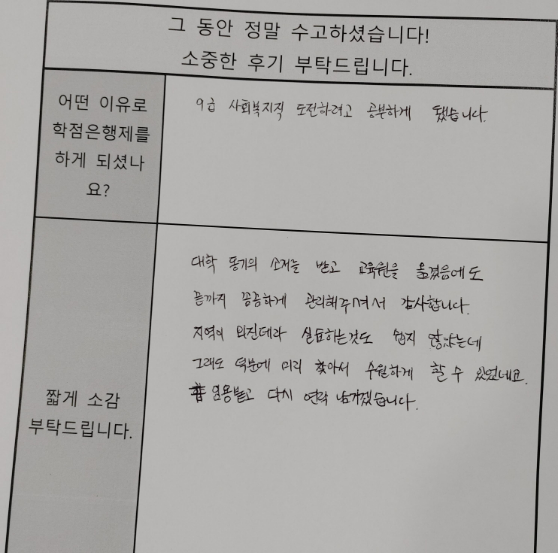 그 동안 정말 수고하셨습니다!
소중한 후기 부탁드립니다.
어떤 이유로
학점은행제를
하게 되셨나
요?
9급 사회복지직 도전하려고 공부하게 됐습니다.
짧게 소감
부탁드립니다.
대학 동기의 소개를 받고 교육원을 옮겼음에도
끝까지 꼼꼼하게 관리해주셔서 감사합니다.
지역이 외진데라 실습하는것도 쉽지 않았는데
그래도 덕분에 미리 찾아서 수월하게 할 수 있었네요.
임용받고 다시 연락 남기겠습니다.